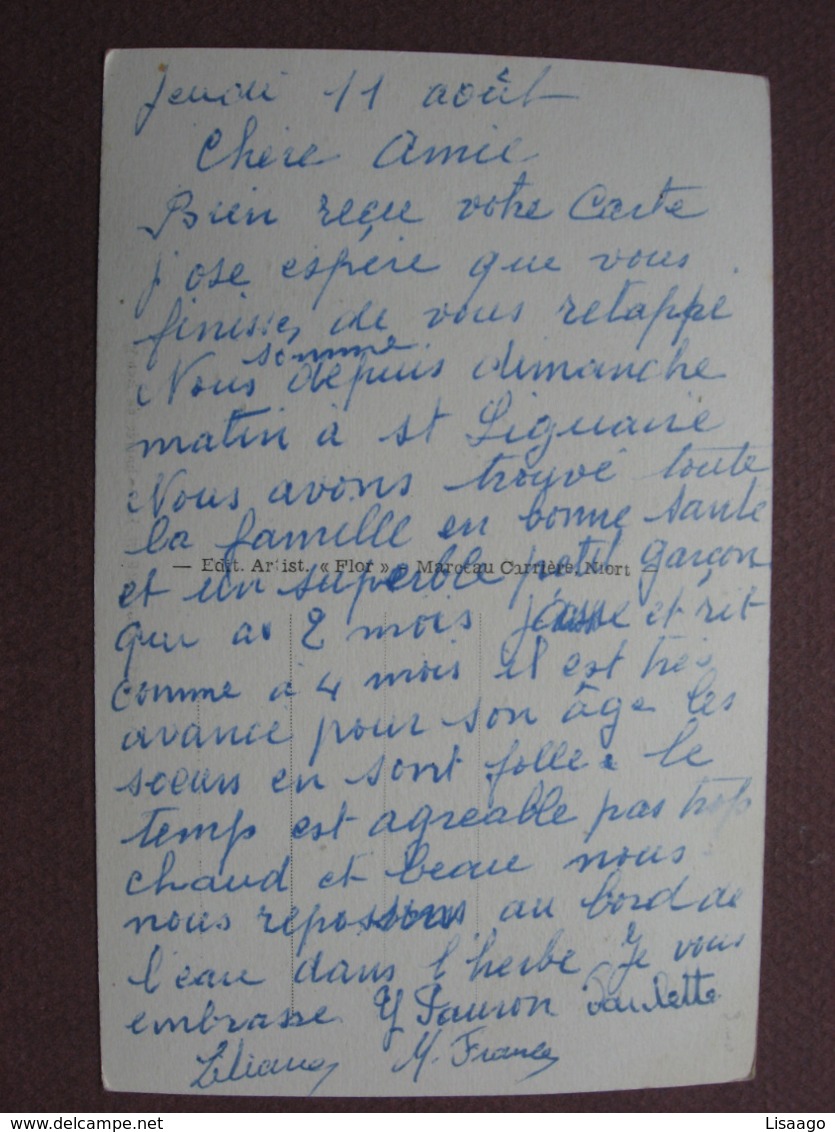 Jeudi 11 août
Chère Amie
Bien reçu votre Carte
j'ose espére que vous
finissez de vous retappe
somme
Nous depuis dimanche
matin à st Liguaire
Nous avons trouvé toute
la famille en bonne santé
— Edit. Artist. « Flor » - Marceau Carrière, Niort —
et un superbe petit garçon
qui a 2 mois jase et rit
comme à 4 mois il est très
avance pour son âge les
sœurs en sont folle le
temps est agreable pas trop
chaud et beau nous
nous reposons au bord de
l'eau dans l'herbe Je vous
embrasse Paulette
Liliane M. France
Lisaago